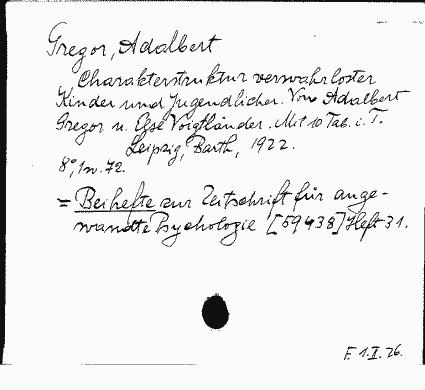 Gregor, Adalbert
Charakterstruktur verwahrloster
Kinder und Jugendlicher. Von Adalbert
Gregor u. Else Voigtländer. Mit 10 Tab. i. T.
Leipzig, Barth, 1922.
8°, 72.
= Beihefte zur Zeitschrift für ange-
wandte Psychologie [59438] Heft 31.
F. 1.II.26.